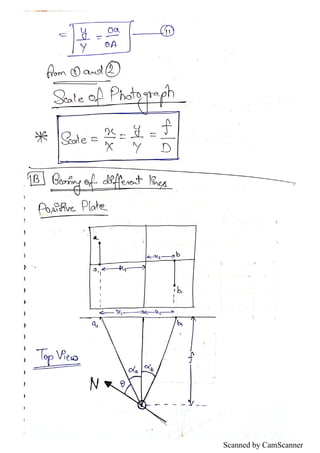 = y/Y = oa/oA — (ii)
from ① and ②
Scale of Photograph
* Scale = x/X = y/Y = f/D
1B Bearing of different lines
Positive Plate
a
x₂ b
a₁ x₁
b₁
x₁ x₂
a₁ b₁
Top View
αa αb f
N θ
Scanned by CamScanner